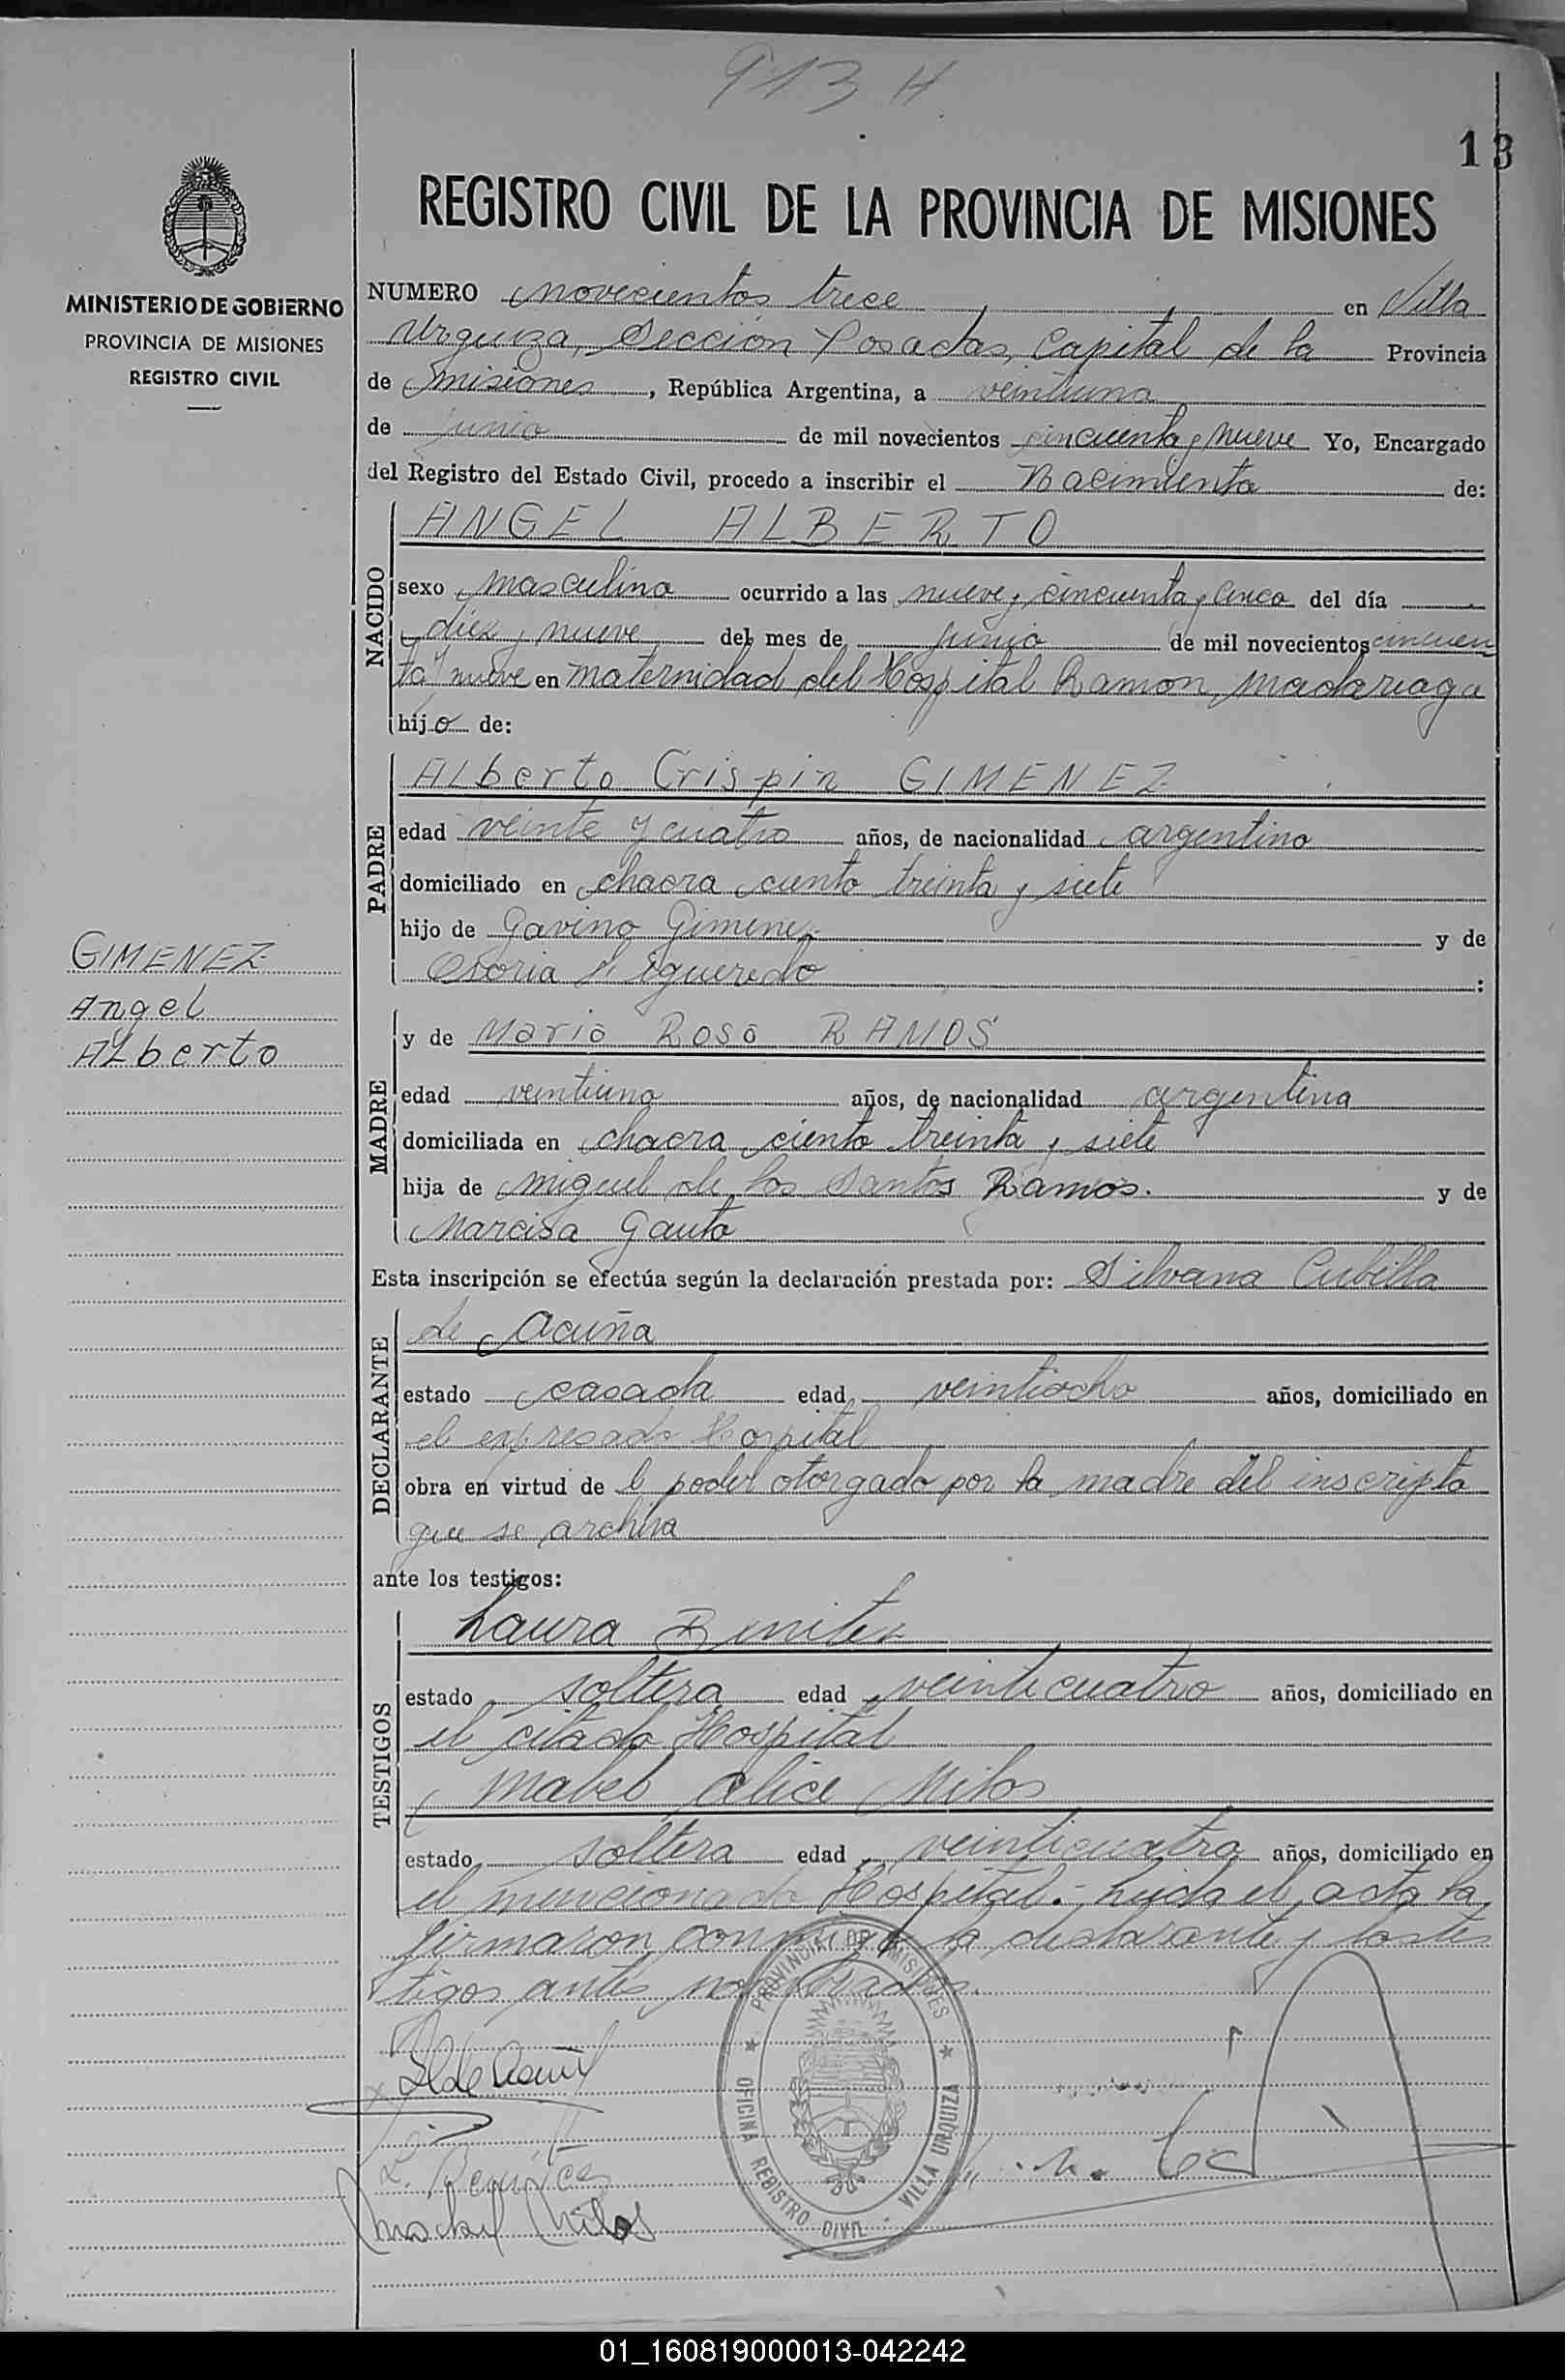 913 H
13
REGISTRO CIVIL DE LA PROVINCIA DE MISIONES
MINISTERIO DE GOBIERNO
PROVINCIA DE MISIONES
REGISTRO CIVIL
NUMERO novecientos trece en Villa
Urquiza, Sección Posadas, Capital de la Provincia
de misiones, República Argentina, a veintiuno
de junio de mil novecientos cincuenta y nueve Yo, Encargado
del Registro del Estado Civil, procedo a inscribir el Nacimiento de:
NACIDO
ANGEL ALBERTO
sexo masculino ocurrido a las nueve y cincuenta y cinco del día
diez y nueve del mes de junio de mil novecientos cincuen
ta y nueve en maternidad del Hospital Ramon madariaga
hijo de:
PADRE
Alberto Crispin GIMENEZ
edad veinte y cuatro años, de nacionalidad argentino
domiciliado en chacra ciento treinta y siete
hijo de Gavino Gimenez y de
Osoria Figueredo :
GIMENEZ
Angel
Alberto
MADRE
y de Maria Rosa RAMOS
edad veintiuno años, de nacionalidad argentina
domiciliada en chacra ciento treinta y siete
hija de miguel de los Santos Ramos. y de
Narcisa Gauto
Esta inscripción se efectúa según la declaración prestada por: Silvana Cubilla
DECLARANTE
de Acuña
estado casada edad veintiocho años, domiciliado en
el expresado Hospital
obra en virtud de el poder otorgado por la madre del inscripto
que se archiva
ante los testigos:
TESTIGOS
Laura Benitez
estado soltera edad veinticuatro años, domiciliado en
el citado Hospital
mabel alice Milos
estado soltera edad veinticuatro años, domiciliado en
el mencionado Hospital.- Leida el acta la
firmaron conmigo la declarante y los tes
tigos antes nombrados.
PROVINCIA DE MISIONES
OFICINA REGISTRO CIVIL - VILLA URQUIZA
S. de Acuña
L. Benitez
Mabel Milos
01_160819000013-042242